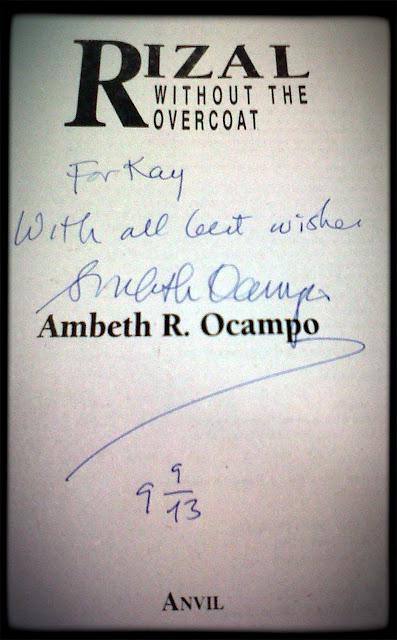 RIZAL
WITHOUT THE
OVERCOAT
For Kay
With all best wishes
Ambeth Ocampo
Ambeth R. Ocampo
9 9/13
ANVIL